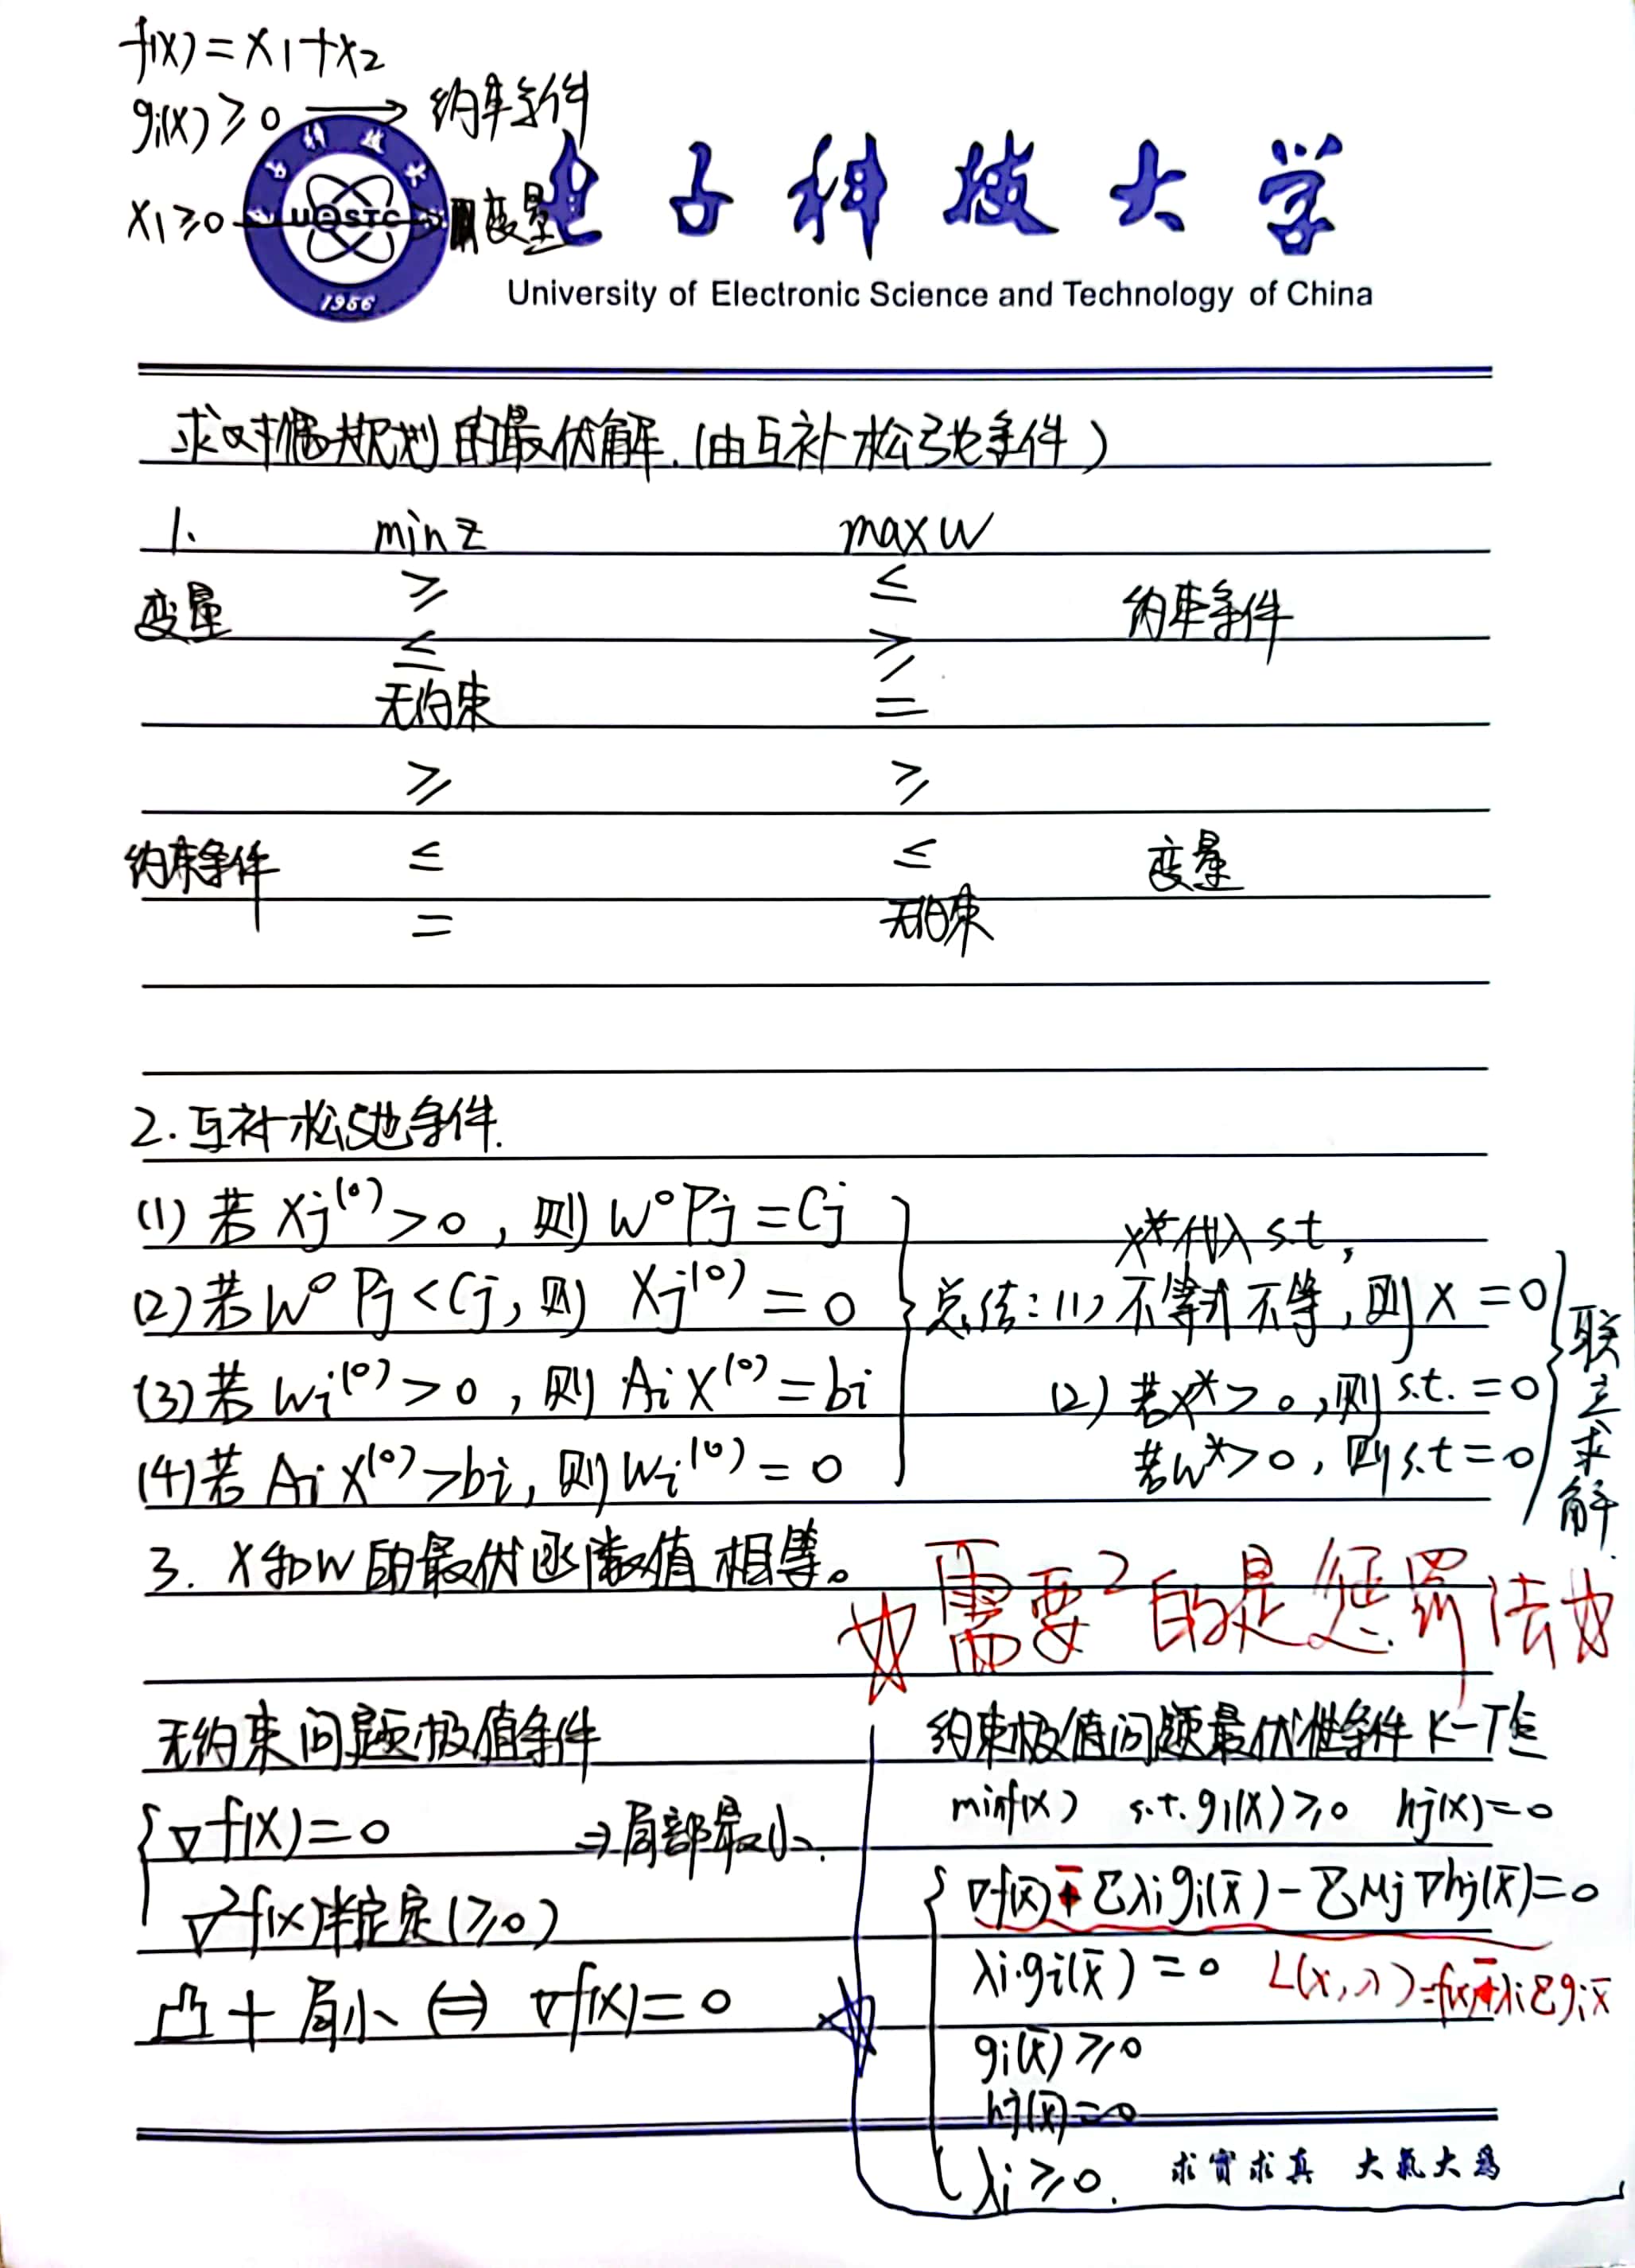 f(x)=x1+x2
gi(x)≥0 → 约束条件
x1≥0 → 变量
电子科技大学
UESTC
1956
University of Electronic Science and Technology of China
求对偶规划的最优解.(由互补松弛条件)
1. min z max w
变量 ≥ ≤ 约束条件
≤ ≥
无约束 =
≥ ≥
约束条件 ≤ ≤ 变量
= 无约束
2.互补松弛条件.
(1)若 Xj⁽⁰⁾>0, 则 W⁰Pj=Cj
(2)若 W⁰Pj<Cj, 则 Xj⁽⁰⁾=0
(3)若 Wi⁽⁰⁾>0, 则 AiX⁽⁰⁾=bi
(4)若 AiX⁽⁰⁾>bi, 则 Wi⁽⁰⁾=0
x*代入 s.t,
总结:(1) 不等式不等,则 x=0
(2) 若x*>0,则 s.t.=0
若w*>0, 则 s.t=0
联立求解.
3. X和W的最优函数值相等。
☆需要²的是惩罚法☆
无约束问题极值条件
∇f(x)=0 ⇒局部最小.
∇²f(x)半正定(≥0)
凸+局小 ⇔ ∇f(x)=0
约束极值问题最优性条件 K-T点
minf(x) s.t. gi(x)≥0 hj(x)=0
∇f(x̄)-Σλigi(x̄)-Σμj∇hj(x̄)=0
λi·gi(x̄)=0 L(x,λ)=f(x)-λiΣgix̄
gi(x̄)≥0
hj(x̄)=0
λi≥0.
求实求真 大气大为